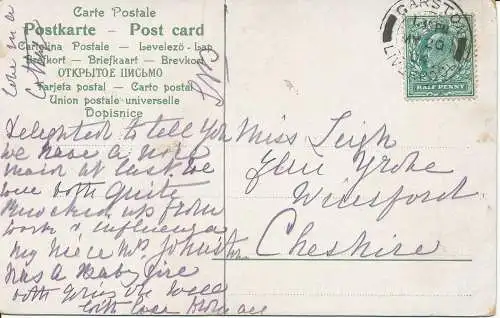 Carte Postale
Postkarte - Post card
Cartolina Postale - Levelezö-Lap
Brefkort - Briefkaart - Brevkort
ОТКРЫТОЕ ПИСЬМО
Tarjeta postal - Carto postal
Union postale universelle
Dopisnice
GARSTON
LIVERPOOL
HALF PENNY
Delighted to tell You
we have a
maid at last we
were both quite
knocked up from
work & influenza
my niece Mrs Johnston
has a Baby fine
both going on well
with love from all
Miss Leigh
Grove
Winsford
Cheshire